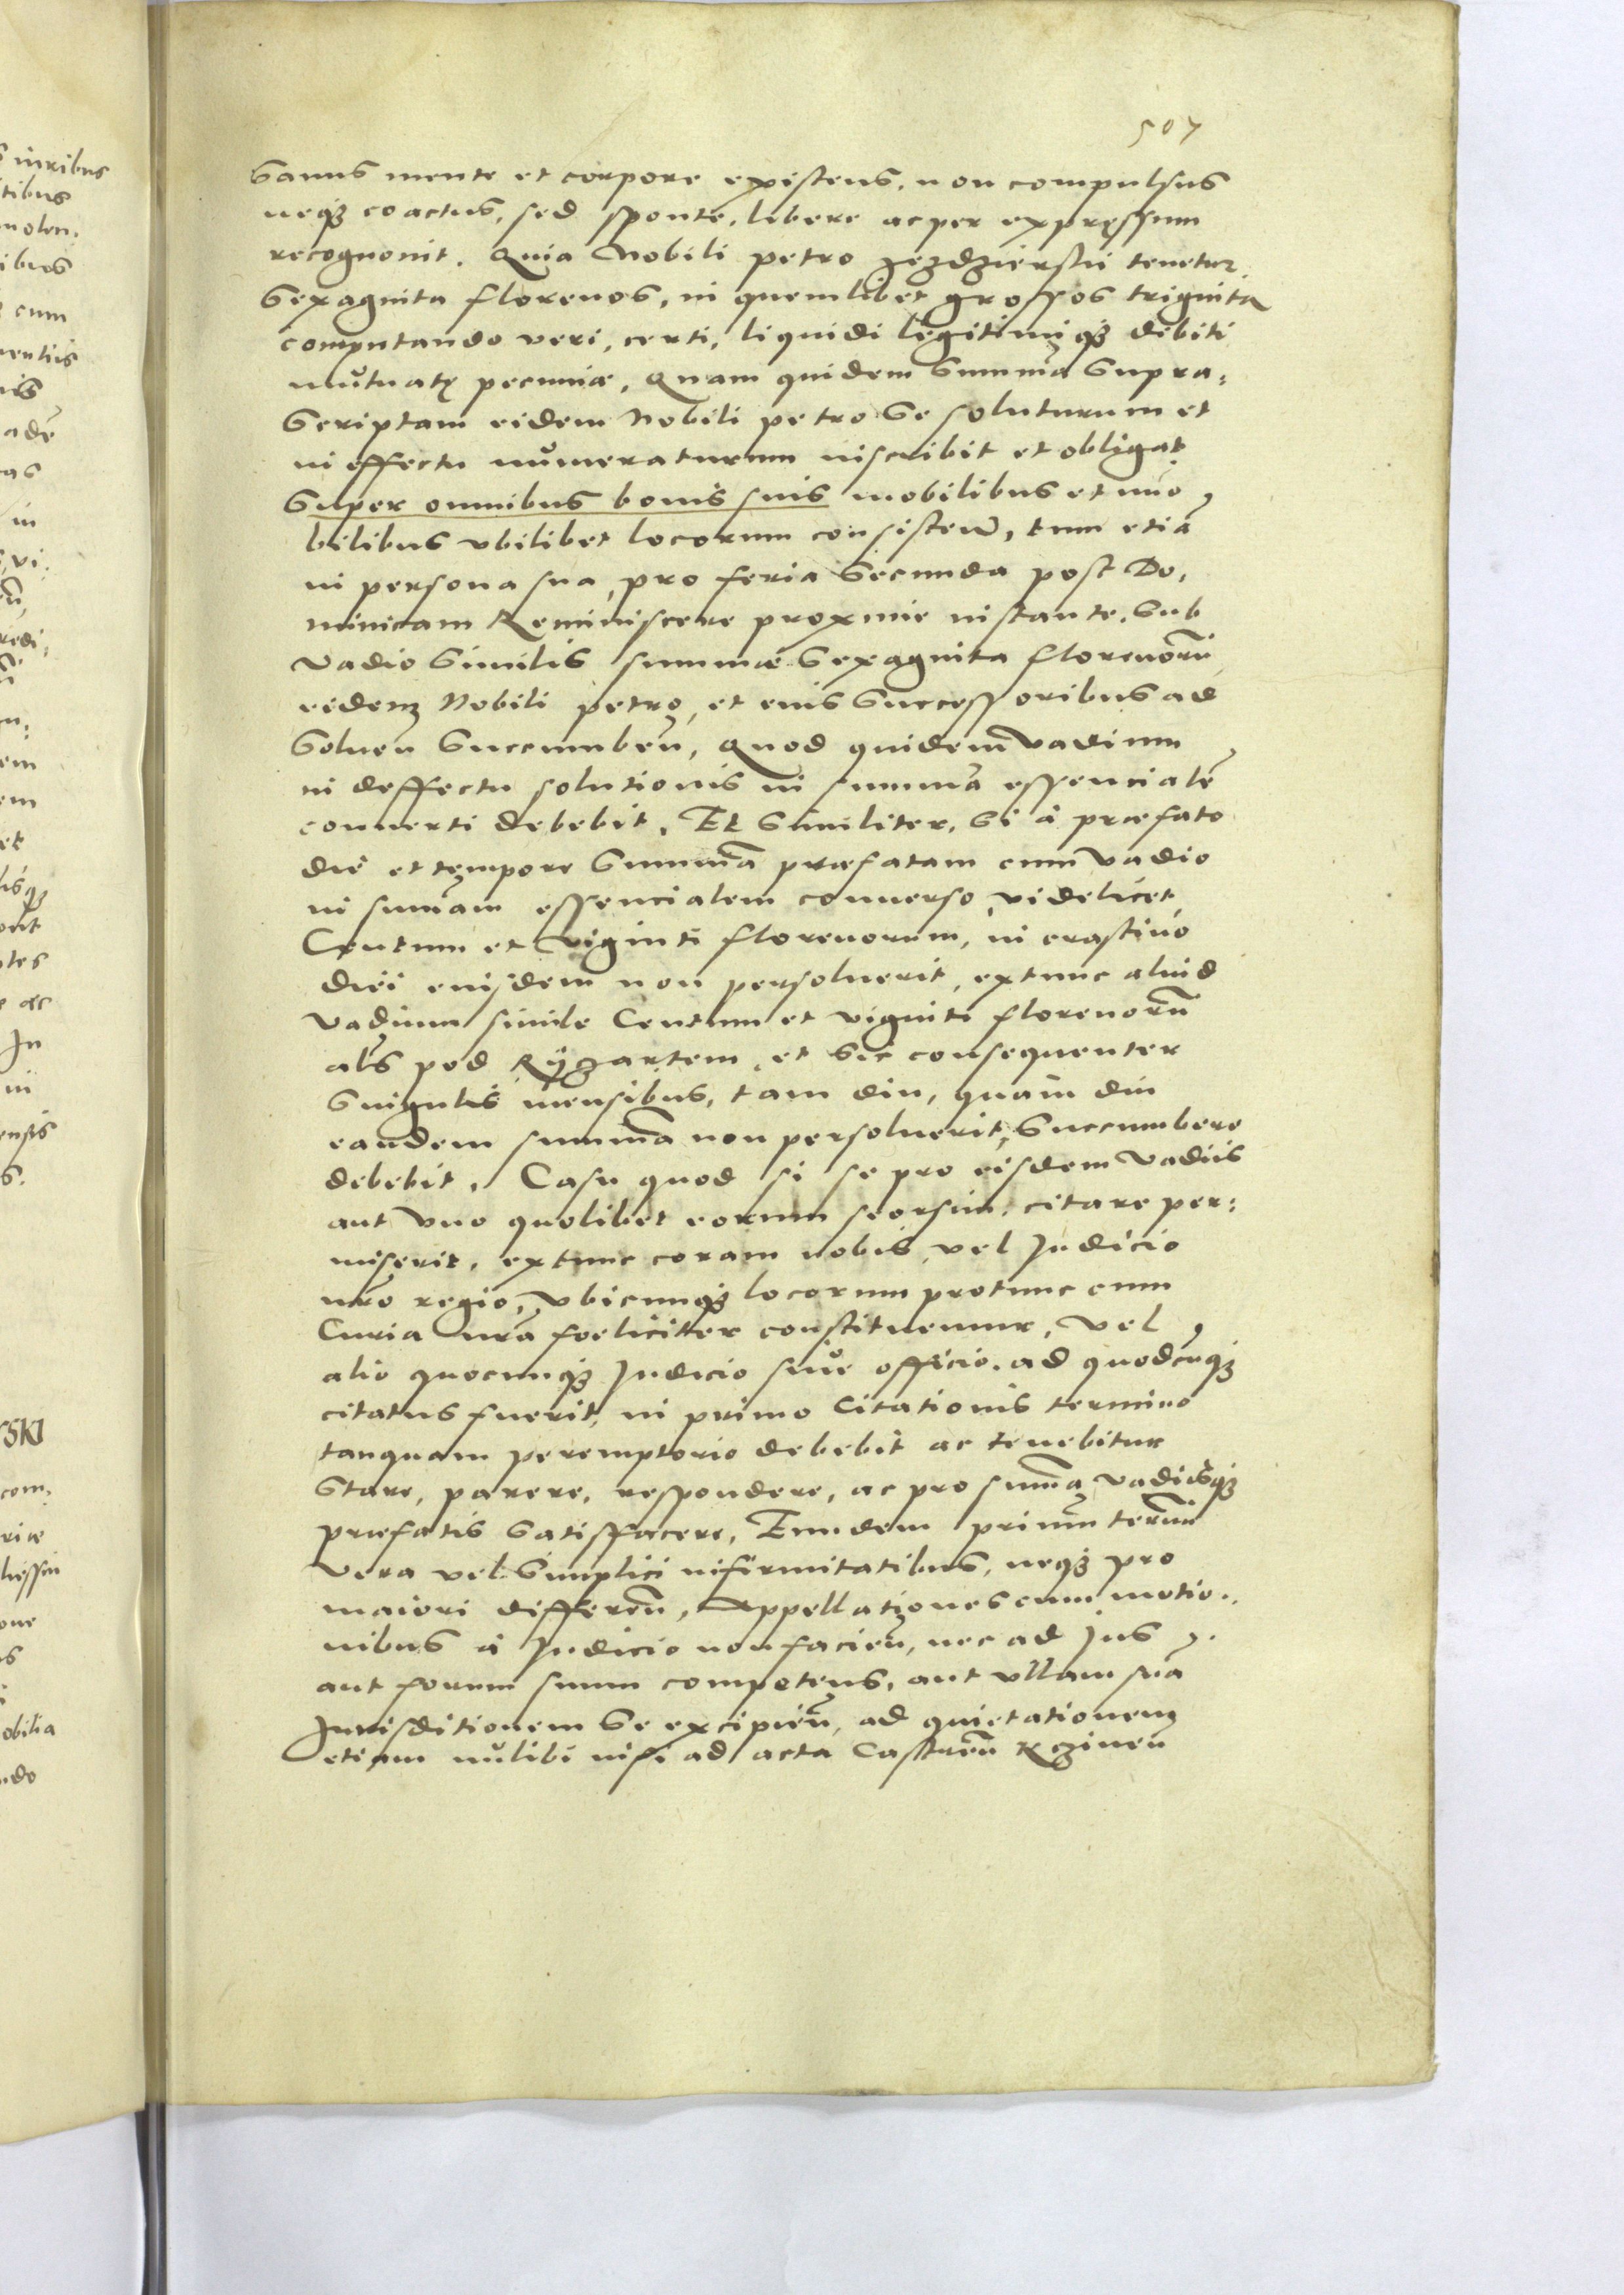 507
Sanus mente et corpore existens, non compulsus
neqꝫ coactus, sed sponte, libere ac per expressum
recognouit. Quia Nobili petro tenetur
Sexaginta florenos, in quemlibet grossos triginta
computando veri, certi, liquidi legitimiqꝫ debiti
mutuatę pecuniæ, Quam quidem Summã Supra,
Scriptam eidem Nobili petro Se soluturum et
in effectu numeraturum inscribit et obligat
Super omnibus bonis suis mobilibus et immo,
bilibus vbilibet locorum consisteñ, tum etiã
in persona sua, pro feria Secunda post Do,
minicam Reminiscere proxime instante, Sub
vadio Similis summæ Sexaginta florenorũ
eidem Nobili petro, et eius Successoribus ad
Solueñ Succumbeñ, Quod quidem vadium
in deffectu solutionis in summã essencialẽ
conuerti debebit, Et Similiter, Si à præfato
die et tempore Summã præfatam cum vadio
in sum̃am essencialem conuerso, videlicet
Centum et viginti florenorum, in crastino
diei eiusdem non persoluerit, extunc aliud
vadium simile Centum et viginti florenorũ
als pod Rÿgartem, et Sic consequenter
Singulis mensibus, tam diu, quam diu
eandem summã non persoluerit, Succumbere
debebit, Casu quod si se pro eisdem vadiis
aut vno quolibet eorum seorsim, citare per:
miserit, extunc coram nobis, vel Judicio
nro regio, vbicunqꝫ locorum protunc cum
Curia nrã foeliciter constituemur, vel
alio quocunqꝫ Judicio siue officio, ad quodcũqꝫ
citatus fuerit, in primo Citationis termino
tanquam peremptorio debebit ac tenebitur
Stare, parere, respondere, ac pro sum̃a, vadiisqꝫ
præfatis Satisfacere, Eundem primum term̃
vera vel Simplici infirmitatibus, neqꝫ pro
maiori differeñ, Appellationes cum motio,
nibus à Judicio non facieñ, nec ad Jus
aut forum suum competens, aut vllam suã
Jurisditionem Se excipieñ, ad quietationem
etiam nullibi nisi ad acta Castreñ